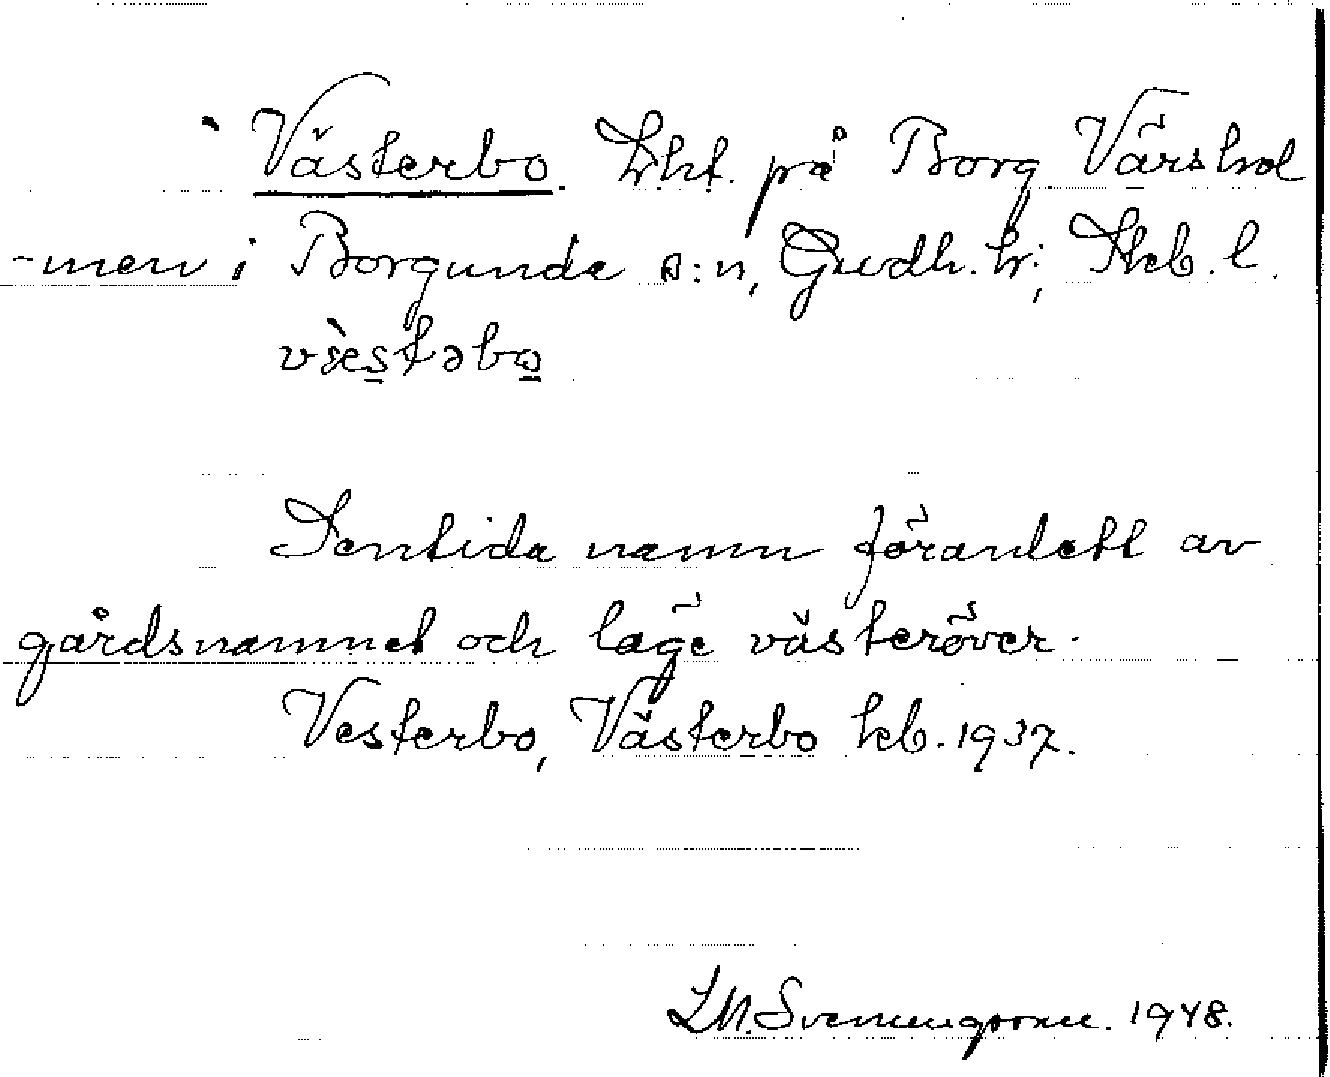 Västerbo. Lht. på Borg Vårshol
-men i Borgunda s:n, Gudh. hr; Skb. l.
væ̀stəbo
Sentida namn föranlett av
gårdsnamnet och läge västeröver.
Vesterbo, Västerbo kb. 1937.
1948.